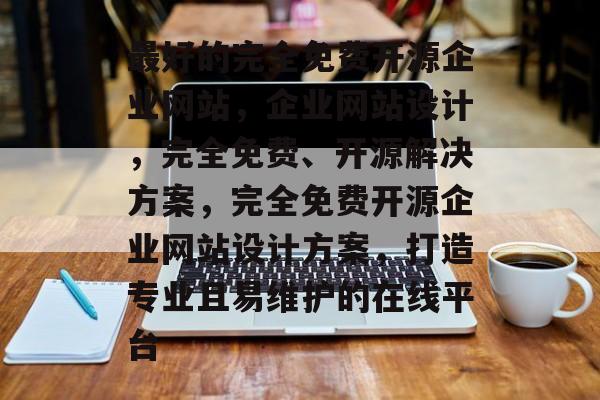 最好的完全免费开源企
业网站，企业网站设计
，完全免费、开源解决
方案，完全免费开源企
业网站设计方案，打造
专业且易维护的在线平
台